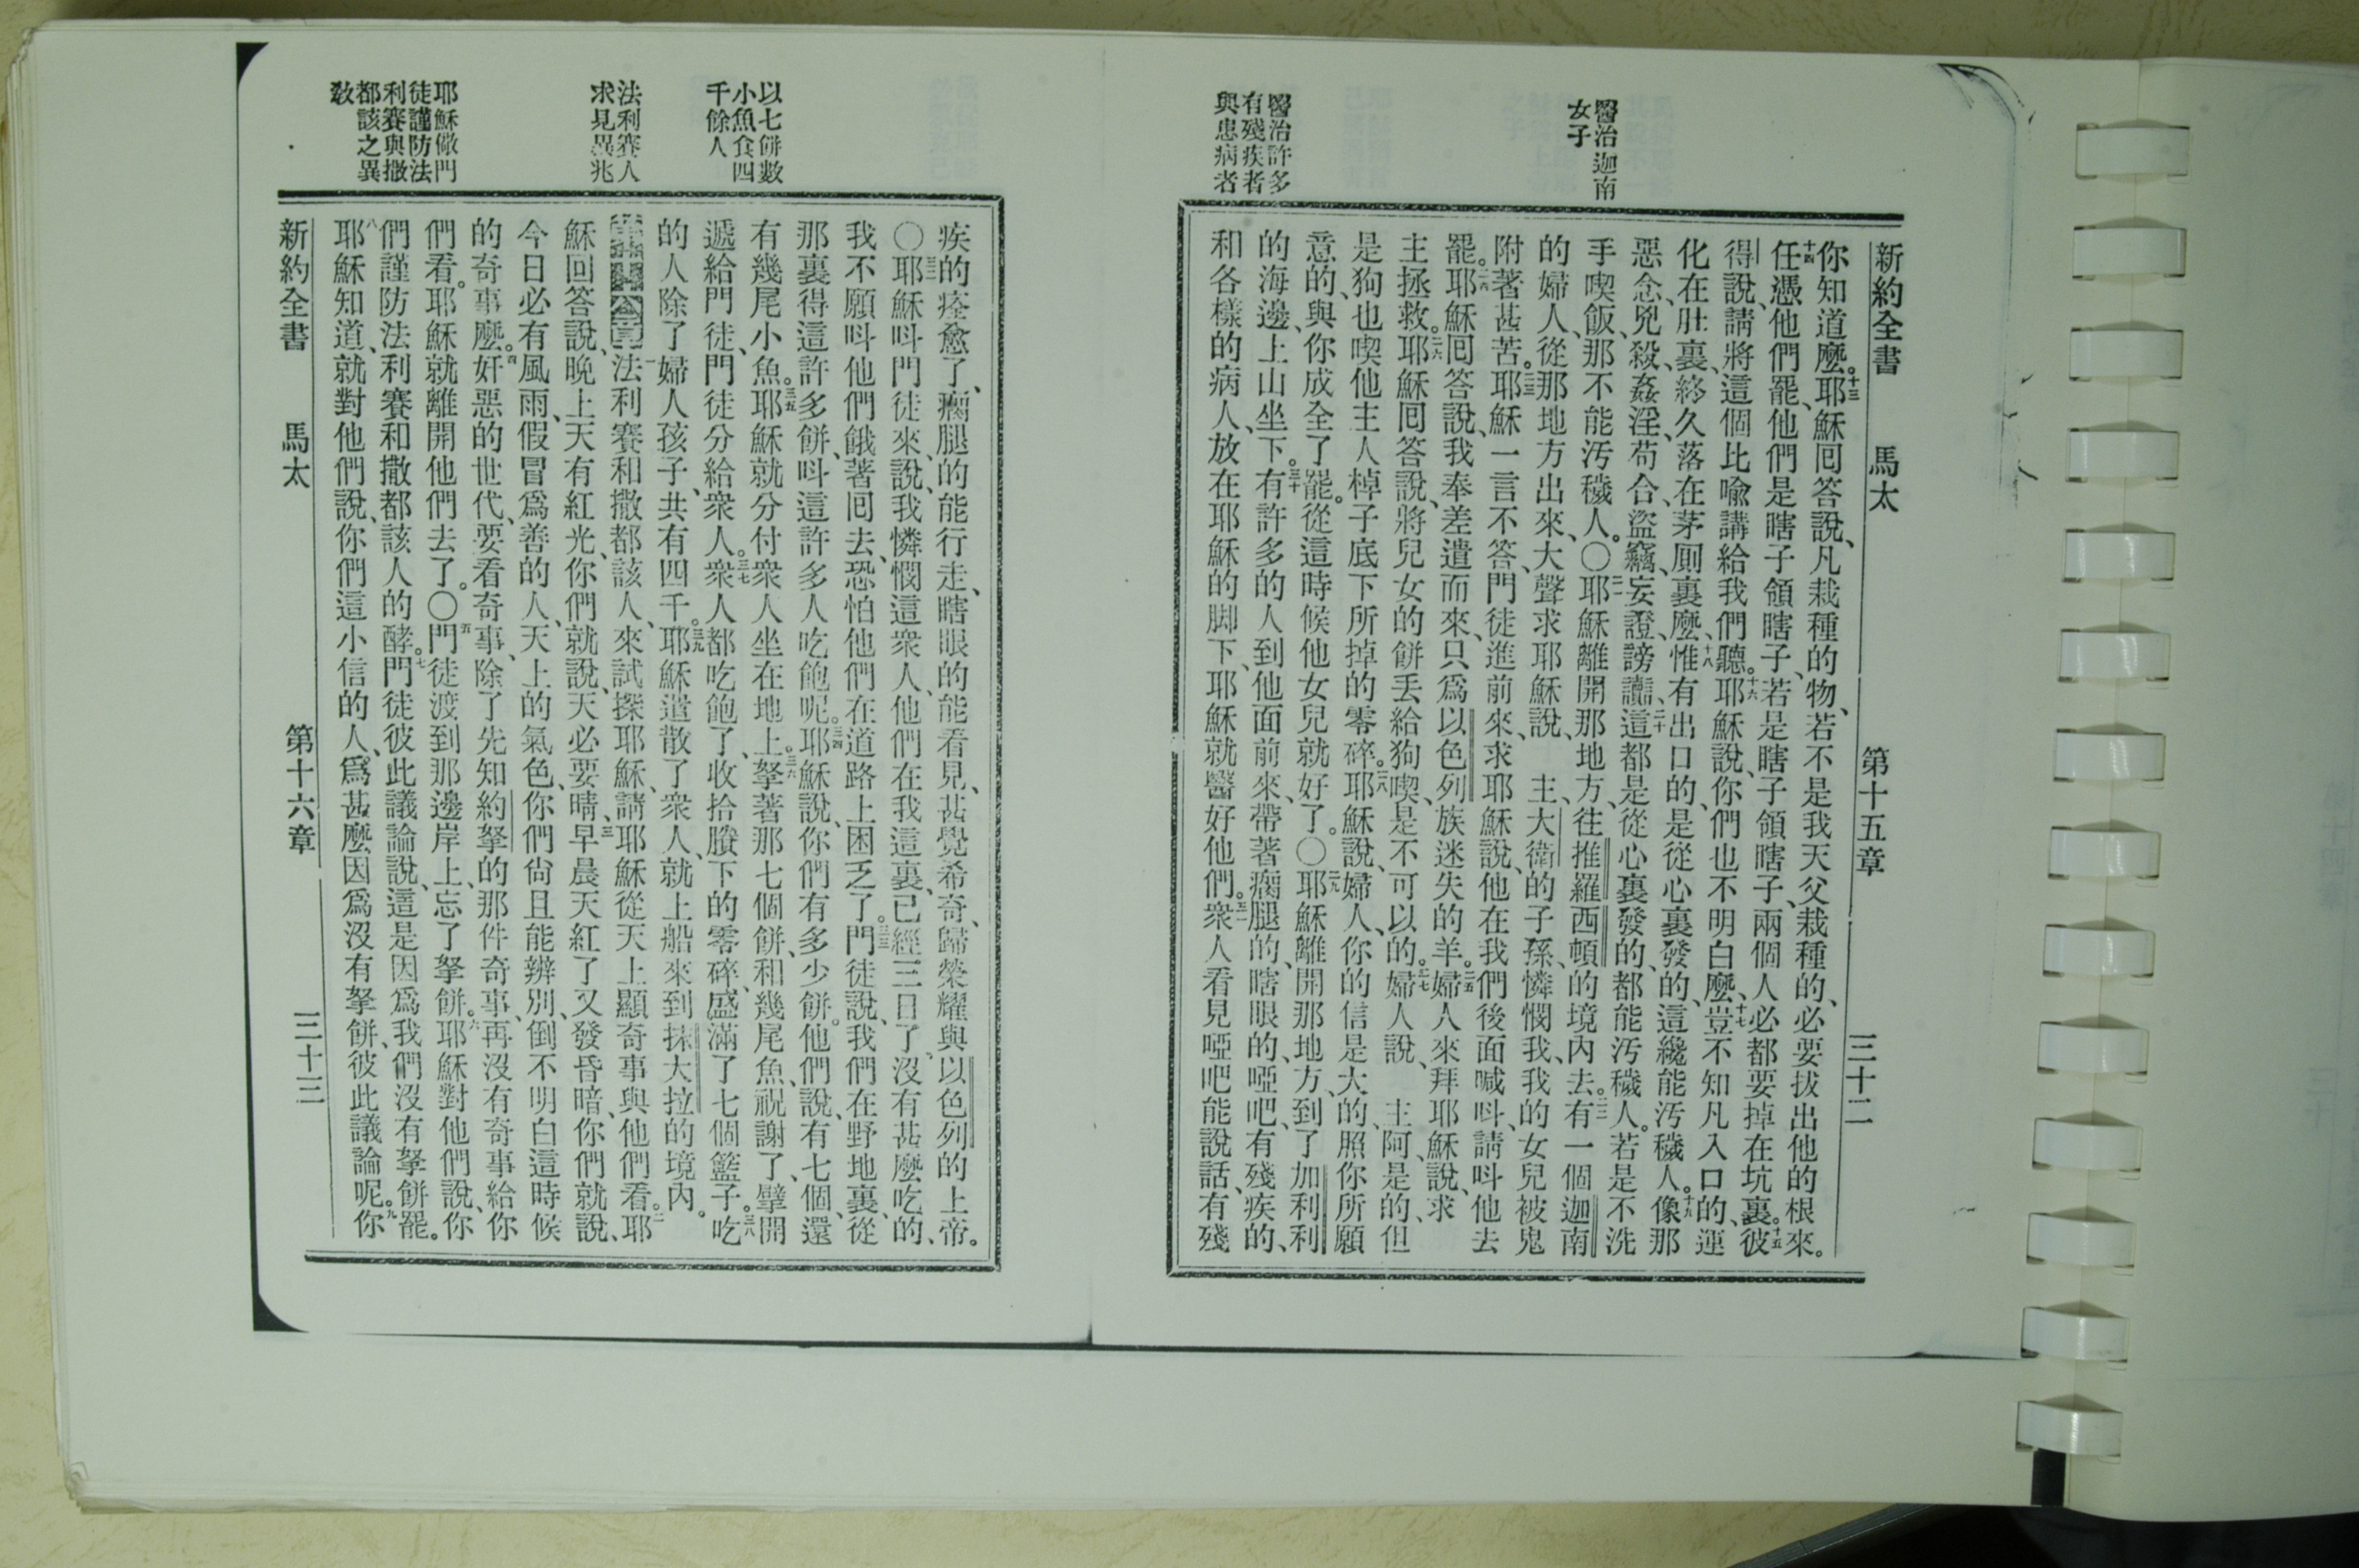 醫治迦南
女子
醫治許多
有殘疾者
與患病者
新約全書 馬太 第十五章 三十二
你知道麼。十三耶穌回答說、凡栽種的物、若不是我天父栽種的、必要拔出他的根來。
十四任憑他們罷、他們是瞎子領瞎子、若是瞎子領瞎子、兩個人必都要掉在坑裏。十五彼
得說、請將這個比喻講給我們聽。十六耶穌說、你們也不明白麼、十七豈不知凡入口的、運
化在肚裏、終久落在茅厠裏麼、十八惟有出口的、是從心裏發的、這纔能汚穢人。十九像那
惡念、兇殺、姦淫、苟合、盜竊、妄證、謗讟、二十這都是從心裏發的、都能汚穢人。若是不洗
手喫飯、那不能汚穢人。〇二一耶穌離開那地方、往推羅西頓的境內去。二二有一個迦南
的婦人、從那地方出來、大聲求耶穌說、 主、大衛的子孫、憐憫我、我的女兒被鬼
附著甚苦。二三耶穌一言不答、門徒進前來、求耶穌說、他在我們後面喊呌、請呌他去
罷。二四耶穌回答說、我奉差遣而來、只爲以色列族迷失的羊。二五婦人來拜耶穌說、求
主拯救。二六耶穌回答說、將兒女的餅丟給狗喫、是不可以的。二七婦人說、 主阿、是的、但
是狗也喫他主人棹子底下所掉的零碎。二八耶穌說、婦人、你的信是大的、照你所願
意的、與你成全了罷。從這時候他女兒就好了。〇二九耶穌離開那地方、到了加利利
的海邊、上山坐下。三十有許多的人到他面前來、帶著瘸腿的、瞎眼的、啞吧、有殘疾的、
和各樣的病人、放在耶穌的脚下、耶穌就醫好他們。三一衆人看見啞吧能說話、有殘
以七餅數
小魚食四
千餘人
法利賽人
求見異兆
耶穌儆門
徒謹防法
利賽與撒
都該之異
敎
疾的痊愈了、瘸腿的能行走、瞎眼的能看見、甚覺希奇、歸榮耀與以色列的上帝。
〇三二耶穌呌門徒來、說、我憐憫這衆人、他們在我這裏、已經三日了、沒有甚麼吃的、
我不願呌他們餓著回去、恐怕他們在道路上困乏了。三三門徒說、我們在野地裏、從
那裏得這許多餅、呌這許多人吃飽呢。三四耶穌說、你們有多少餅。他們說、有七個、還
有幾尾小魚。三五耶穌就分付衆人坐在地上。三六拏著那七個餅、和幾尾魚、祝謝了、擘開
遞給門徒、門徒分給衆人。三七衆人都吃飽了、收拾賸下的零碎、盛滿了七個籃子。三八吃
的人除了婦人孩子、共有四千。三九耶穌遣散了衆人、就上船來到抹大拉的境內。
第十六章 一法利賽和撒都該人、來試探耶穌、請耶穌從天上顯奇事與他們看。二耶
穌回答說、晚上天有紅光、你們就說、天必要晴、三早晨天紅了又發昏暗、你們就說、
今日必有風雨、假冒爲善的人、天上的氣色、你們尙且能辨別、倒不明白這時候
的奇事麼。四奸惡的世代、要看奇事、除了先知約拏的那件奇事、再沒有奇事給你
們看。耶穌就離開他們去了。〇五門徒渡到那邊岸上、忘了拏餅。六耶穌對他們說、你
們謹防法利賽和撒都該人的酵。七門徒彼此議論說、這是因爲我們沒有拏餅罷。
八耶穌知道、就對他們說、你們這小信的人、爲甚麼因爲沒有拏餅、彼此議論呢。九你
新約全書 馬太 第十六章 三十三